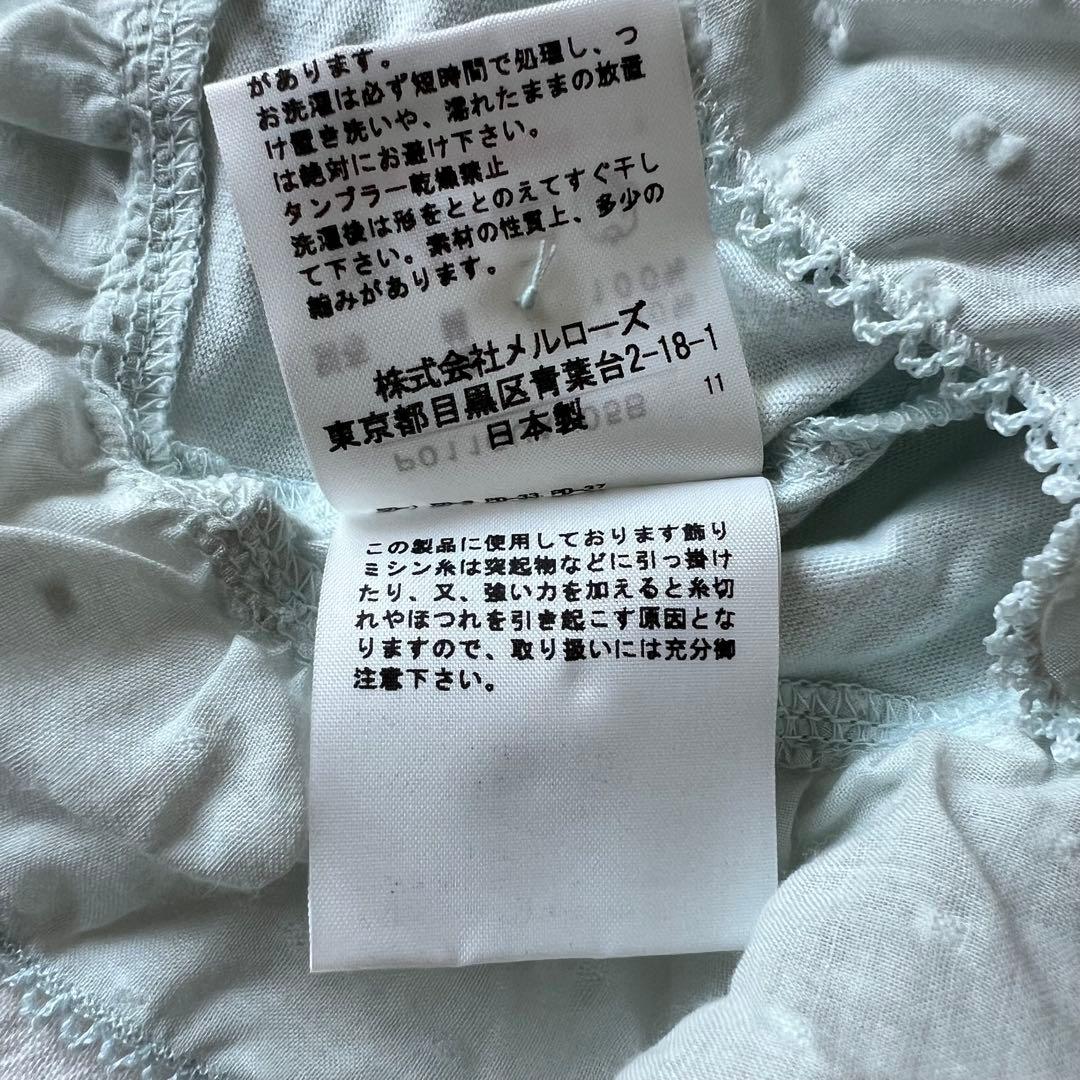 があります。
お洗濯は必ず短時間で処理し、つ
け置き洗いや、濡れたままの放置
は絶対にお避け下さい。
タンブラー乾燥禁止
洗濯後は形をととのえてすぐ干し
て下さい。素材の性質上、多少の
縮みがあります。
株式会社メルローズ
東京都目黒区青葉台2-18-1
日本製
11
この製品に使用しております飾り
ミシン糸は突起物などに引っ掛け
たり、又、強い力を加えると糸切
れやほつれを引き起こす原因とな
りますので、取り扱いには充分御
注意下さい。